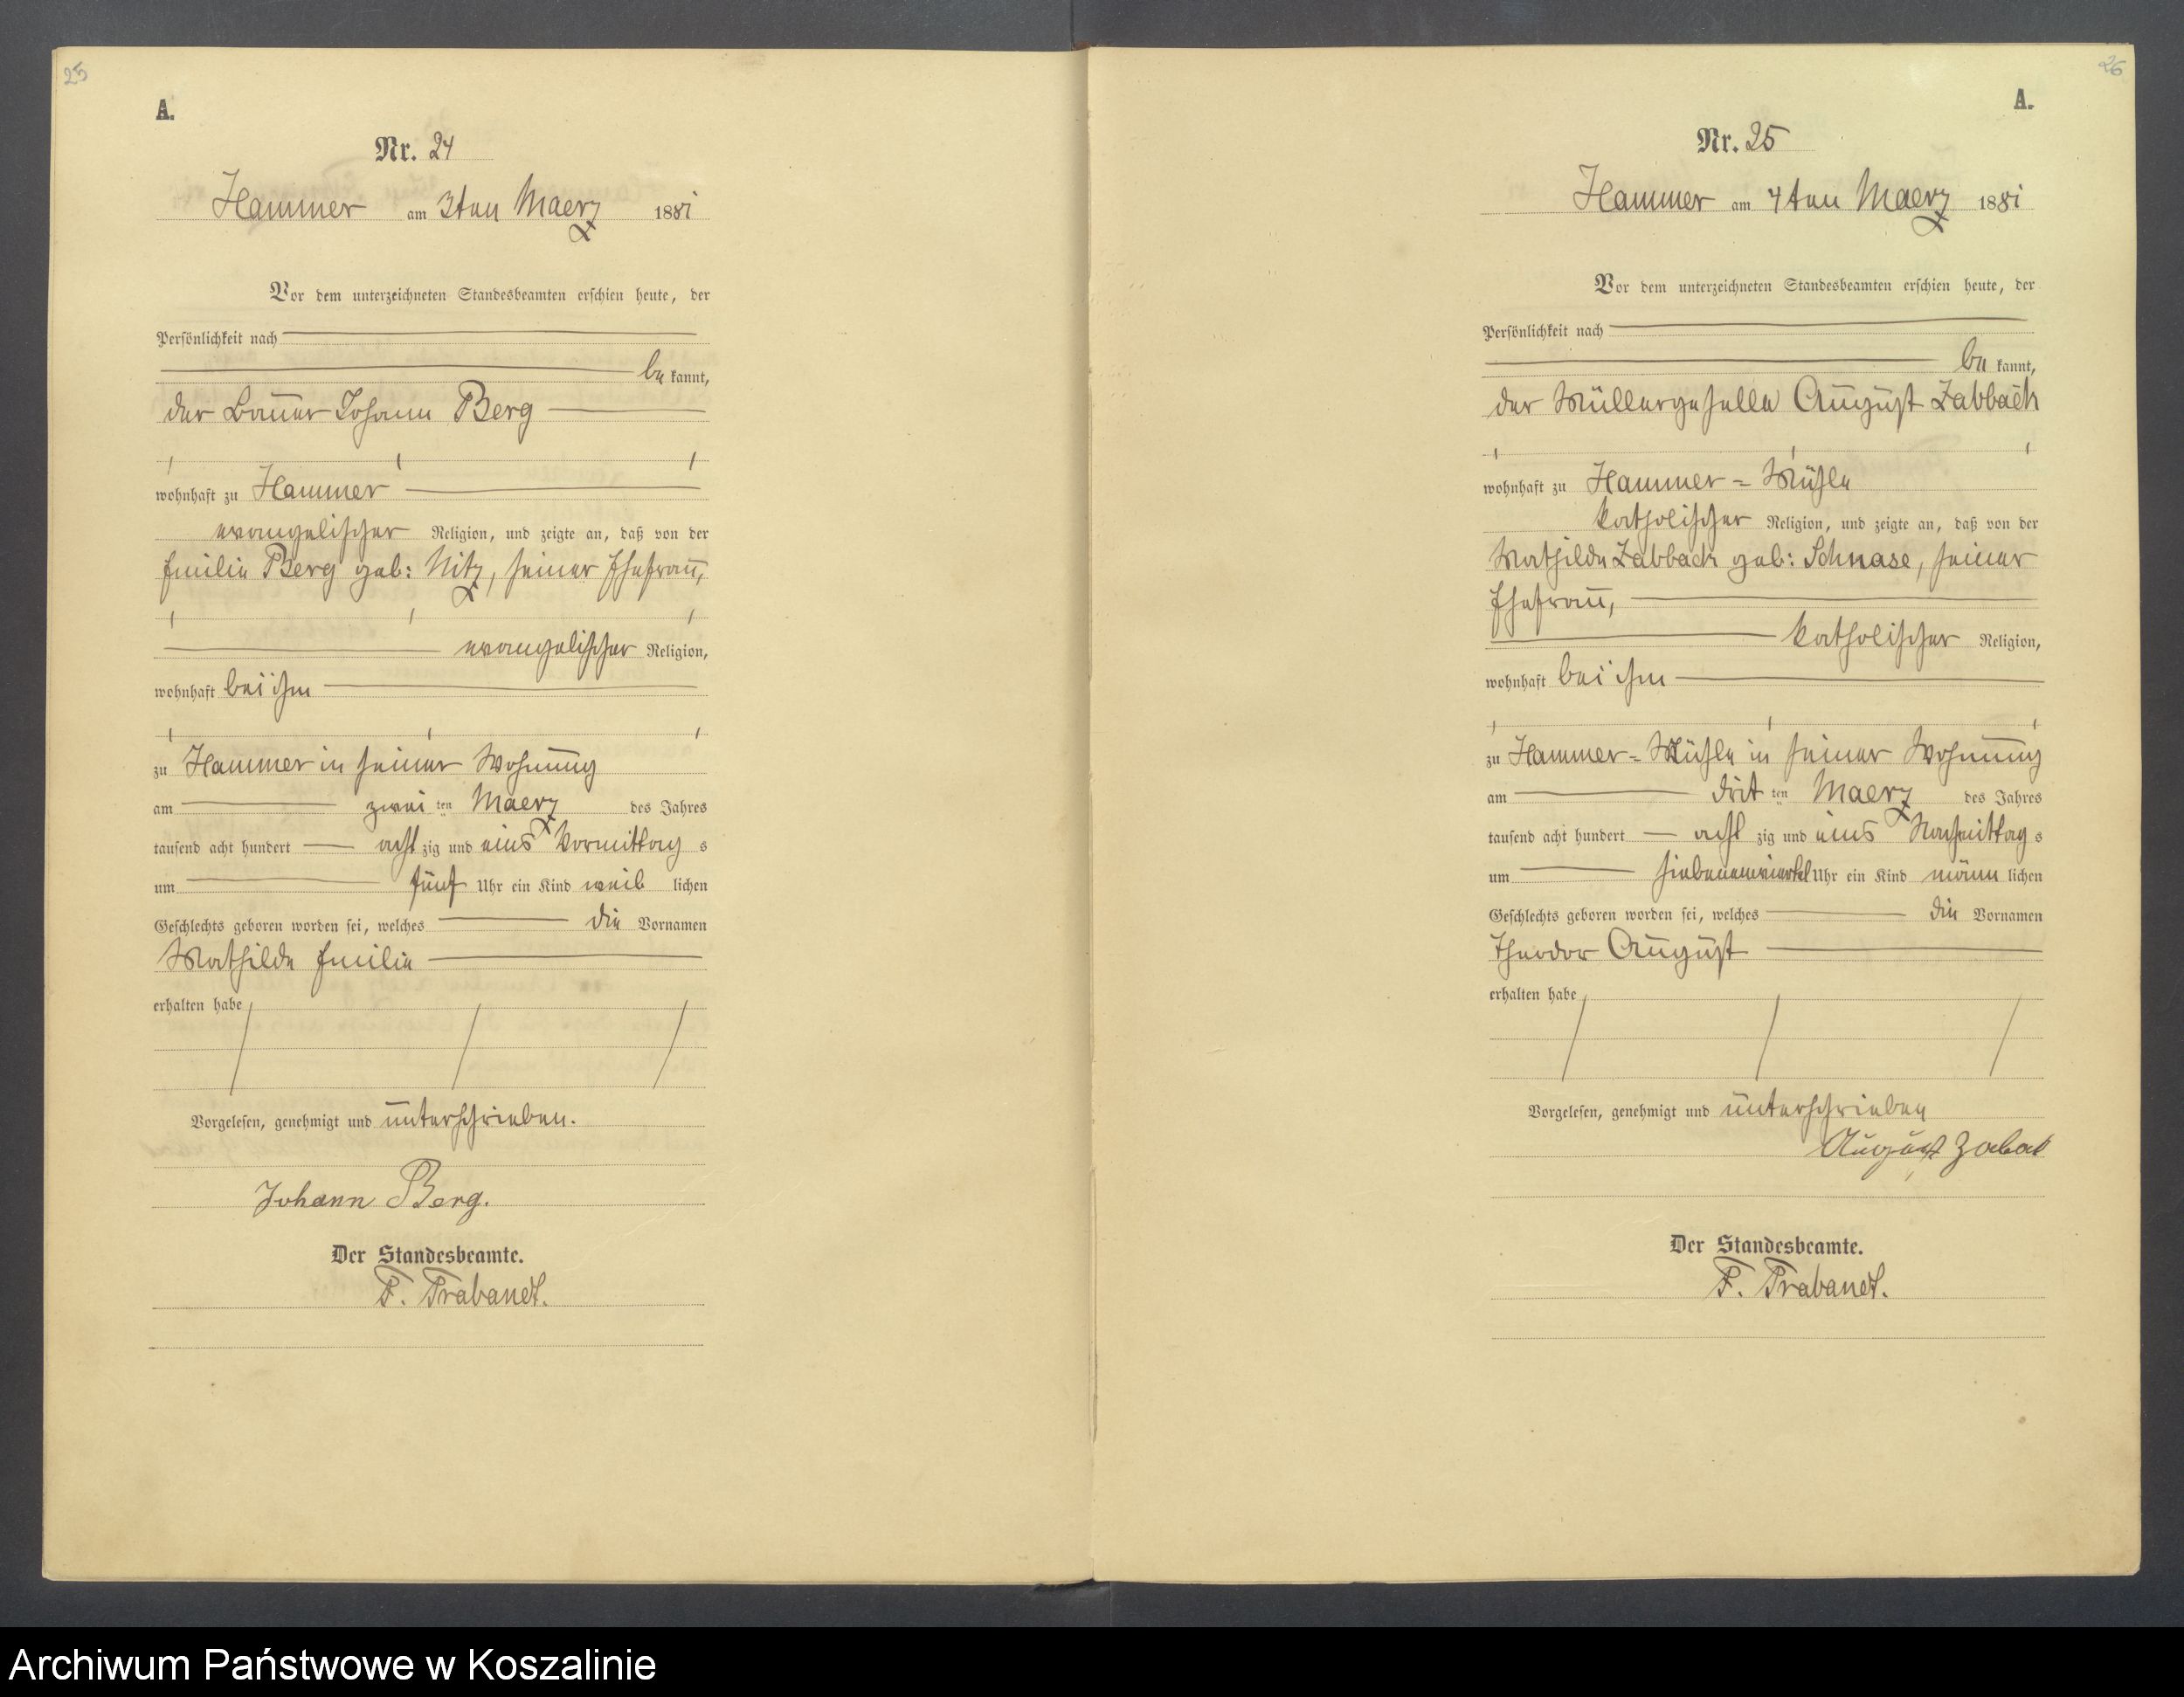 25
A.
Nr. 24
Hammer am 3ten Maerz 1881
Vor dem unterzeichneten Standesbeamten erschien heute, der
Persönlichkeit nach
be kannt,
der Bauer Johann Berg
wohnhaft zu Hammer
evangelischer Religion, und zeigte an, daß von der
Emilie Berg geb: Nitz, seiner Ehefrau,
evangelischer Religion,
wohnhaft bei ihm
zu Hammer in seiner Wohnung
am zwei ten Maerz des Jahres
tausend acht hundert acht zig und eins Vormittag s
um fünf Uhr ein Kind weib lichen
Geschlechts geboren worden sei, welches die Vornamen
Mathilde Emilie
erhalten habe
Vorgelesen, genehmigt und unterschrieben.
Johann Berg.
Der Standesbeamte.
F. Trabandt.
26
A.
Nr. 25
Hammer am 4ten Maerz 1881
Vor dem unterzeichneten Standesbeamten erschien heute, der
Persönlichkeit nach
be kannt,
der Müllergeselle August Zabbach
wohnhaft zu Hammer=Mühle
katholischer Religion, und zeigte an, daß von der
Mathilde Zabbach geb: Schnase, seiner
Ehefrau,
katholischer Religion,
wohnhaft bei ihm
zu Hammer=Mühle in seiner Wohnung
am drit ten Maerz des Jahres
tausend acht hundert acht zig und eins Nachmittag s
um Uhr ein Kind männ lichen
Geschlechts geboren worden sei, welches die Vornamen
Theodor August
erhalten habe
Vorgelesen, genehmigt und unterschrieben
August Zabak
Der Standesbeamte.
F. Trabandt.
Archiwum Państwowe w Koszalinie